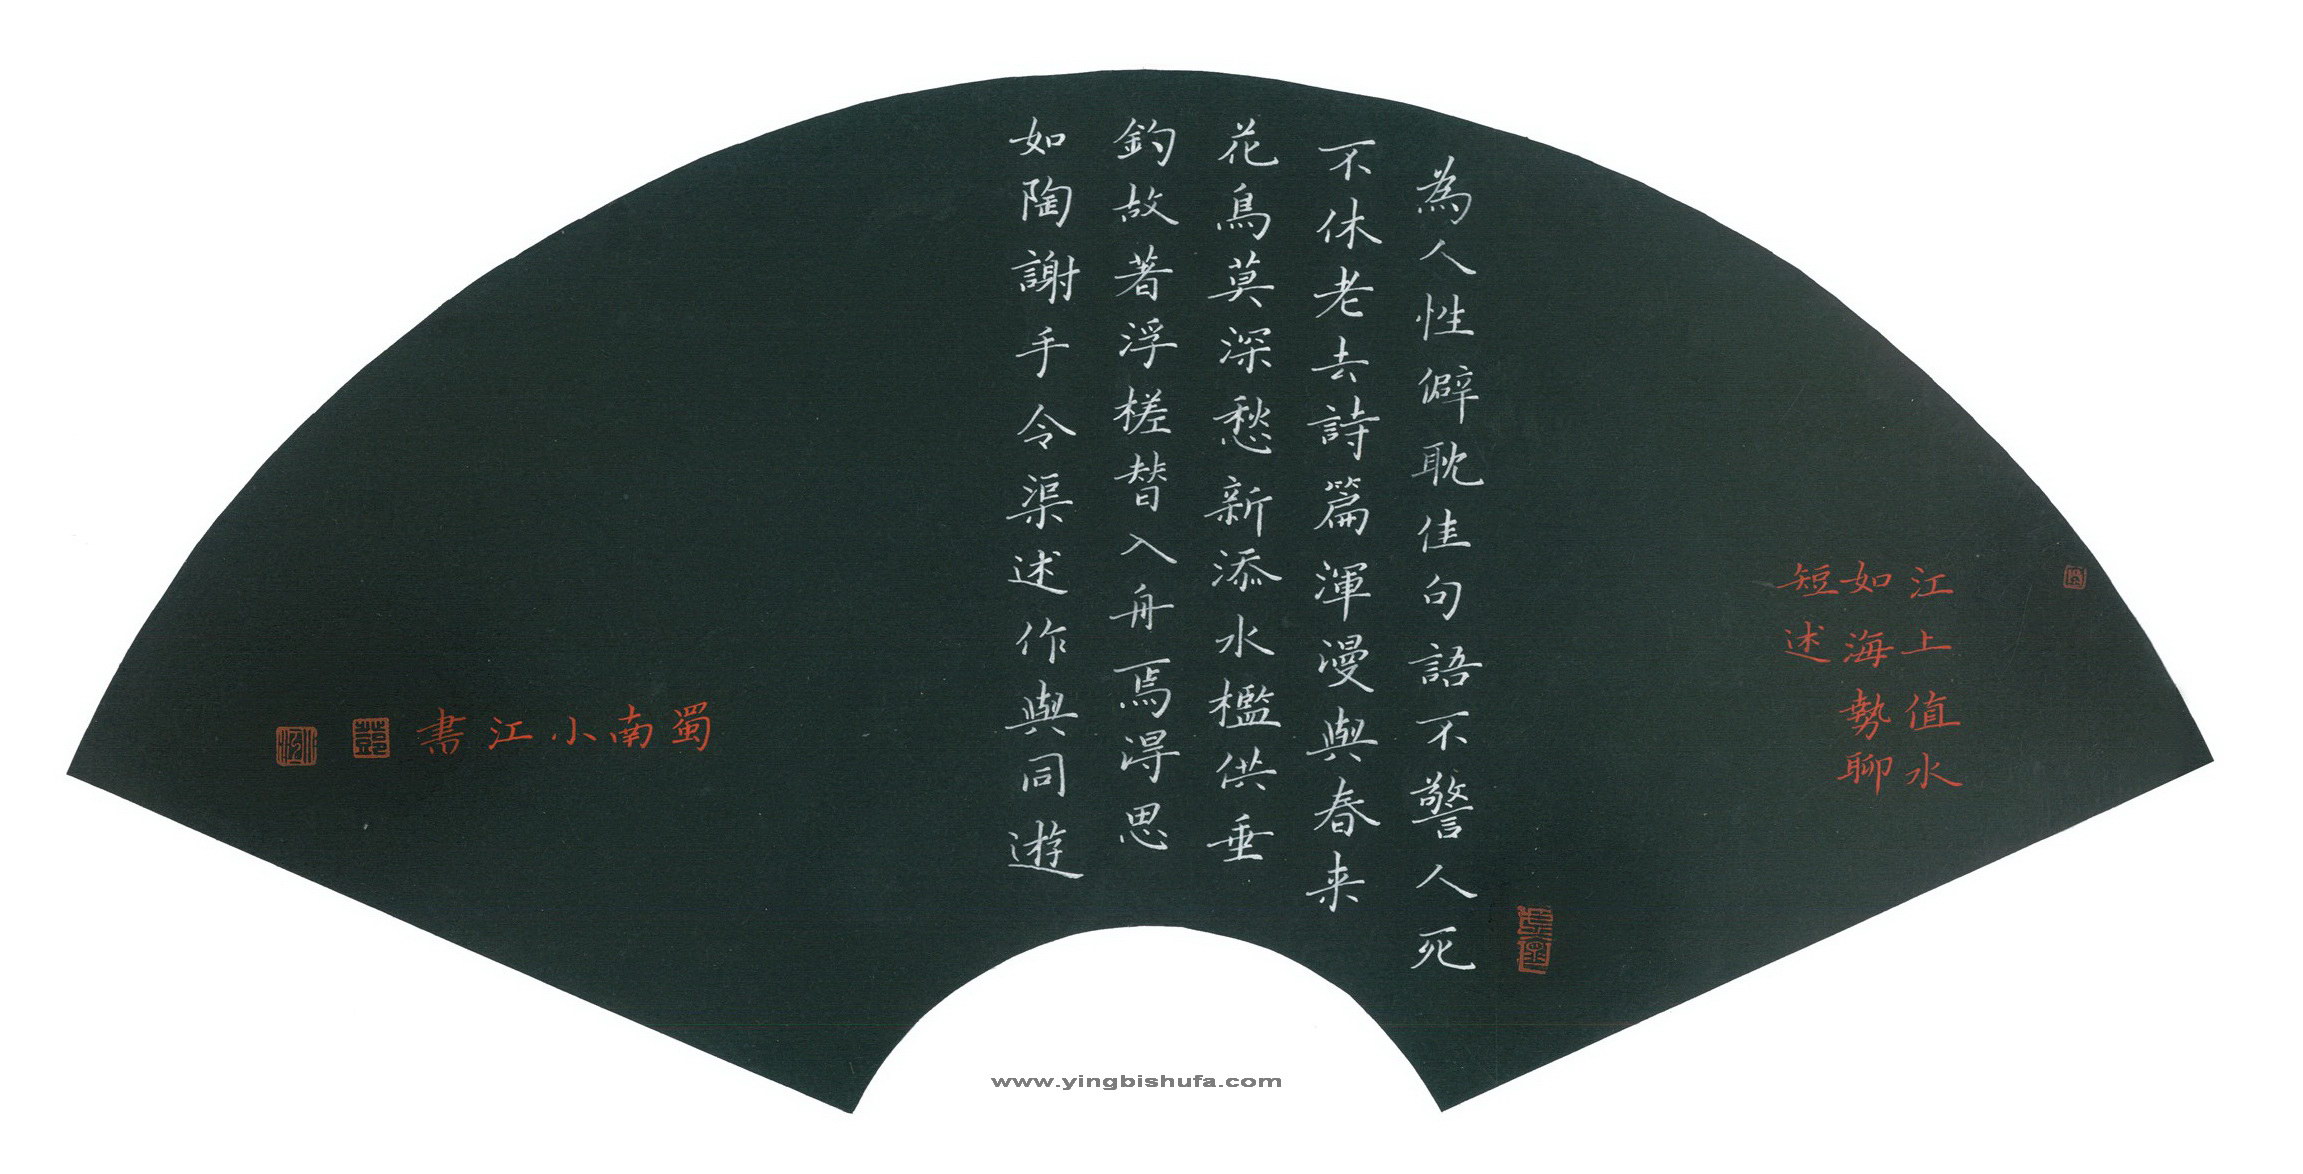 江上值水
如海勢聊
短述
為人性僻耽佳句語不警人死
不休老去詩篇渾漫與春来
花鳥莫深愁新添水檻供垂
釣故著浮槎替入舟焉得思
如陶謝手令渠述作與同遊
蜀南小江書
www.yingbishufa.com